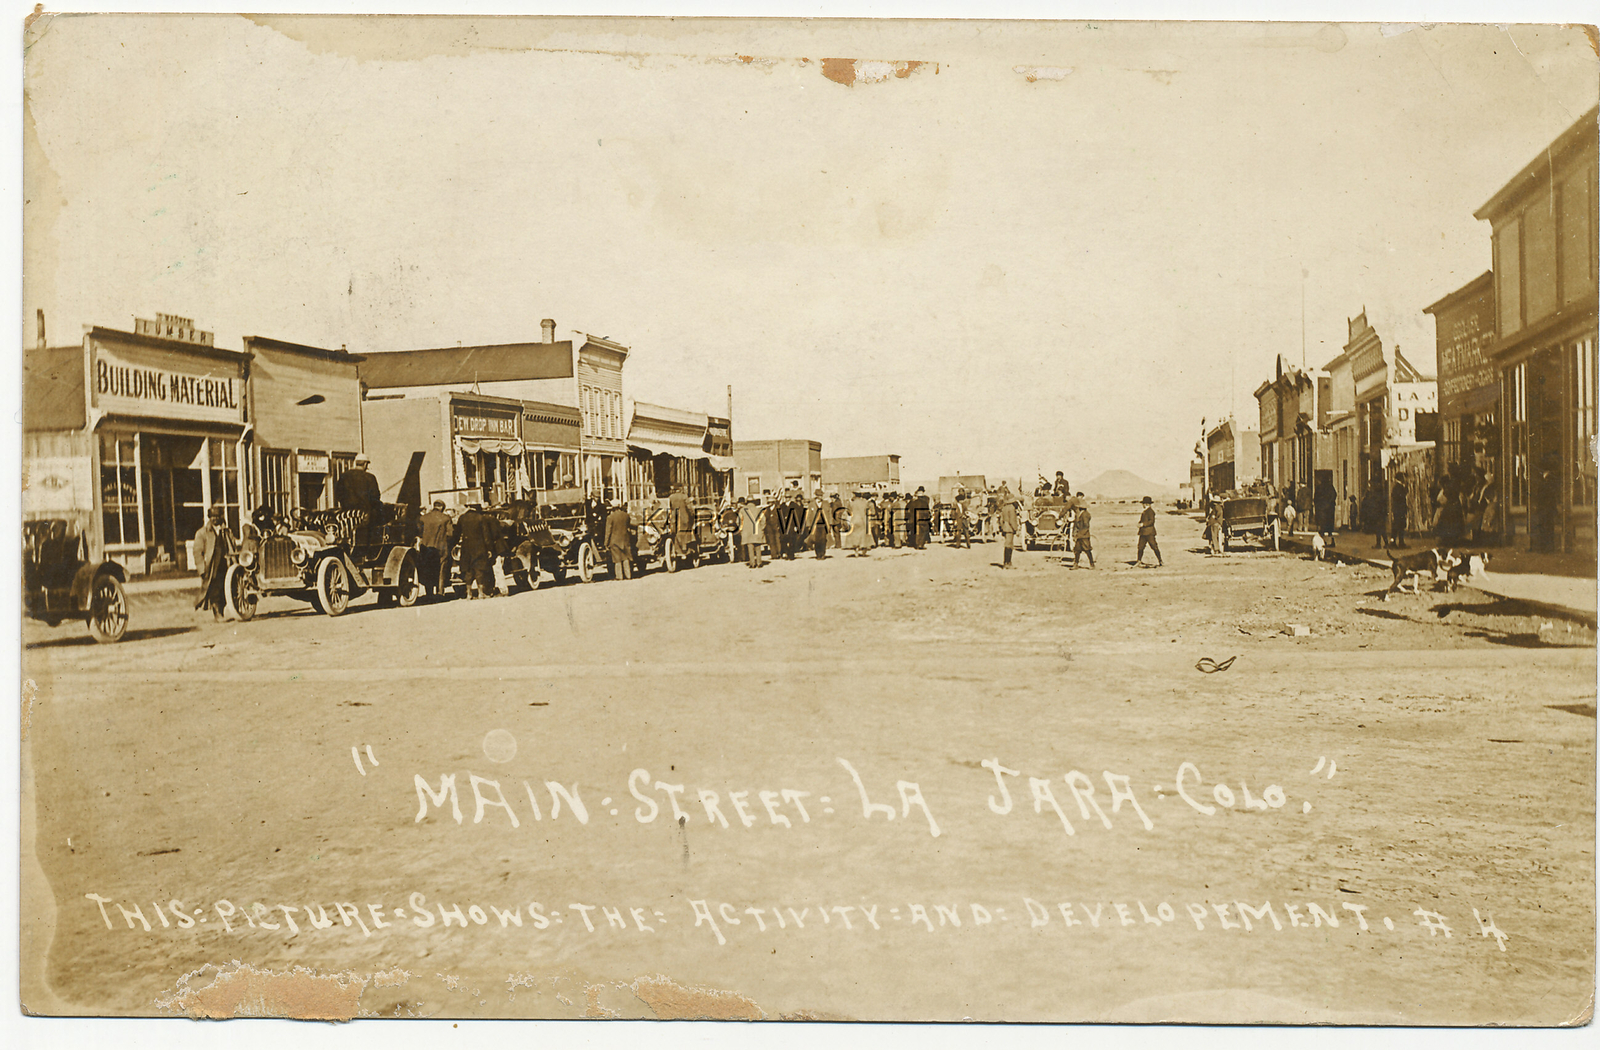 LUMBER
BUILDING MATERIAL
DEW DROP INN BAR
KILROY WAS HERE
MEAT MARKET
CONFECTIONERY
LA J
D
"MAIN=STREET=LA JARA=COLO."
THIS=PICTURE=SHOWS=THE=ACTIVITY=AND=DEVELOPEMENT. # 4